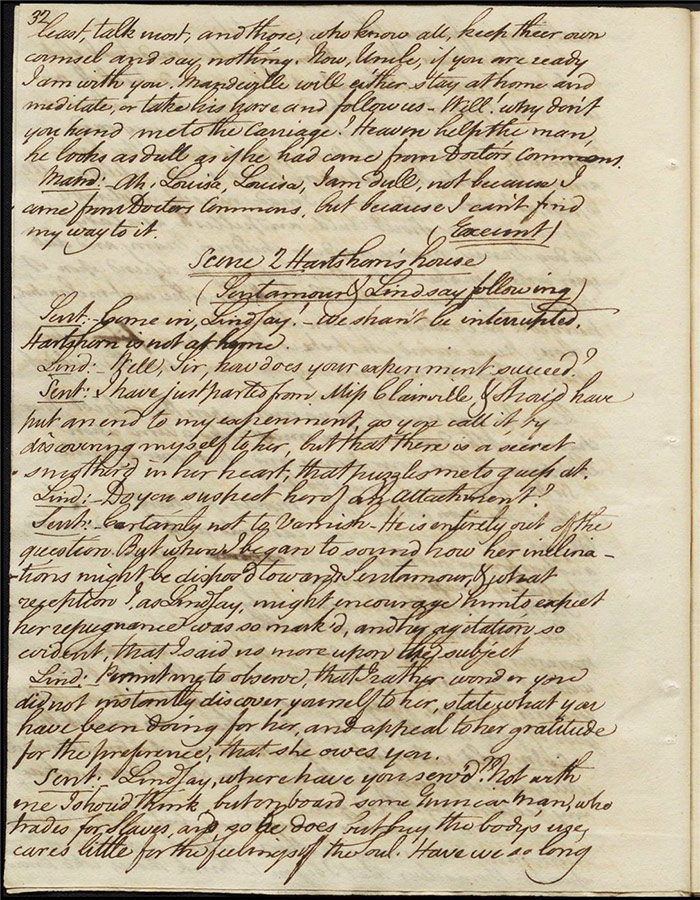 32
least, talk most, and those, who know all, keep their own
counsel and say nothing. Now, Uncle, if you are ready
I am with you. Mandeville will either stay at home and
meditate, or take his horse and follow us – Will! why don't
you hand me to the Carriage? Heaven help the man,
he looks as dull as if he had come from Doctors Commons.
Mand: – Ah, Louisa, Louisa, I am dull, not because I
come from Doctors Commons, but because I can't find
my way to it. (Exeunt)
Scene 2 Hartshorn's house
(Sentamour & Lindsay following)
Sent: – Come in, Lindsay! – We shan't be interrupted.
Hartshorn is not at home
Lind: – Well, Sir, how does your experiment succeed?
Sent: I have just parted from Miss Clairville, & shou'd have
put an end to my experiment, as you call it by
discovering myself to her, but that there is a secret
smother'd in her heart, that puzzles me to guess at.
Lind: – Do you suspect her of an attachment?
Sent: – Certainly not to Varnish – He is entirely out of the
question. But when I began to sound how her inclina-
tions might be dispos'd towards Sentamour, & what
reception I, as Lindsay, might encourage him to expect
her repugnance was so mark'd, and her agitation so
evident, that I said no more upon the subject
Lind: Permit me to observe, that I rather wonder you
did not instantly discover yourself to her, state what you
have been doing for her, and appeal to her gratitude
for the preference, that she owes you.
Sent: Lindsay, where have you serv'd? Not with
me I shou'd think, but on board some Guinea-man, who
trades for slaves, and, so he does but buy the body's use,
cares little for the feelings of the soul. Have we so long